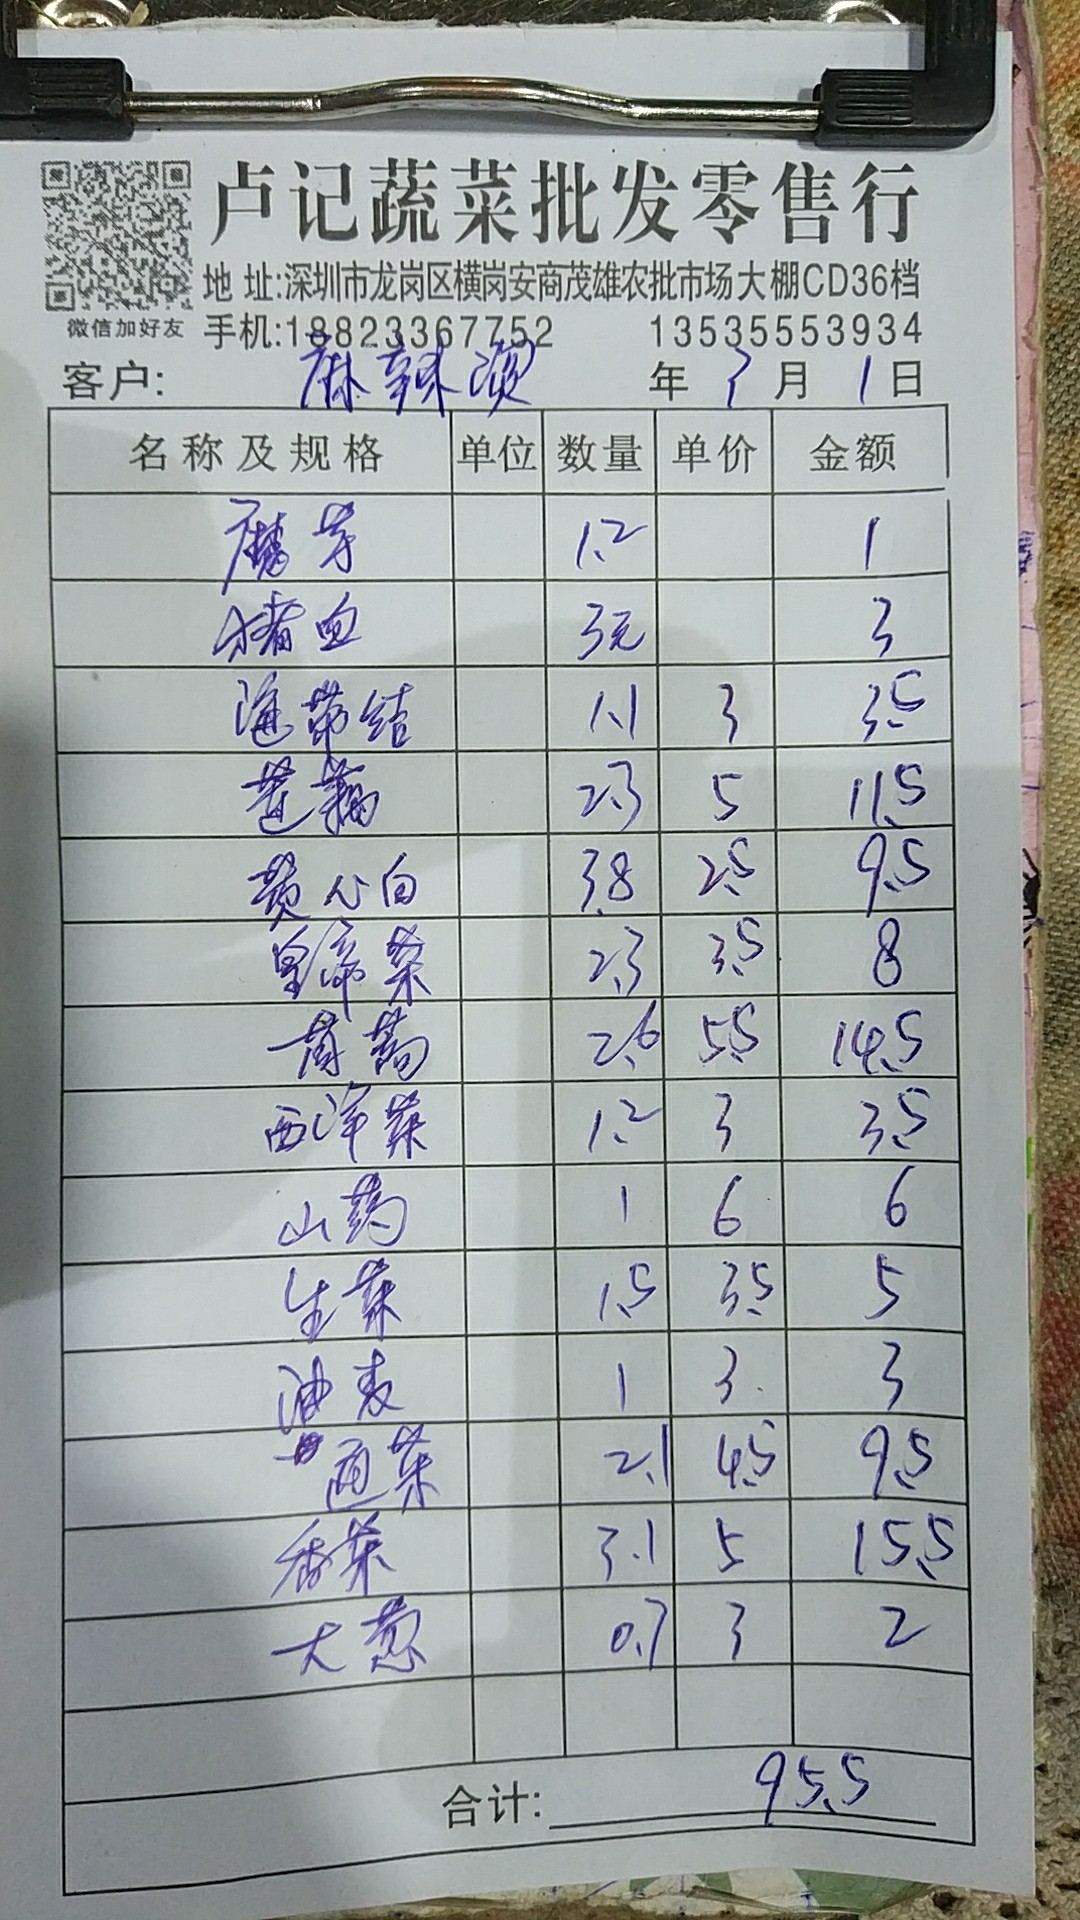 卢记蔬菜批发零售行
地 址:深圳市龙岗区横岗安商茂雄农批市场大棚CD36档
微信加好友 手机:18823367752 13535553934
客户: 麻辣烫 年 7 月 1 日
名称及规格 单位 数量 单价 金额
魔芋 1.2 1
猪血 3元 3
海带结 1.1 3 3.5
莲藕 2.3 5 11.5
黄心白 3.8 2.5 9.5
皇帝菜 2.3 3.5 8
茼蒿 2.6 5.5 14.5
西洋菜 1.2 3 3.5
山药 1 6 6
生菜 1.5 3.5 5
油麦 1 3 3
通菜 2.1 4.5 9.5
香菜 3.1 5 15.5
大葱 0.7 3 2
合计: 95.5